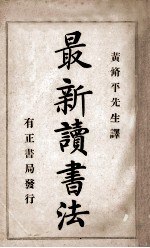 黃脩平先生譯
最新讀書法
有正書局發行